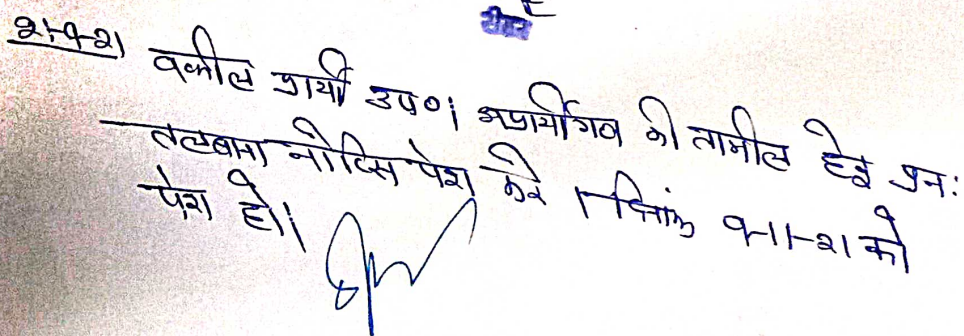 21-9-21 वकील प्रार्थी उप०। अप्रार्थीगण की तामील हेतु पुनः
तलबाना नोटिस पेश करे। दिनांक 9-11-21 को
पेश हो।